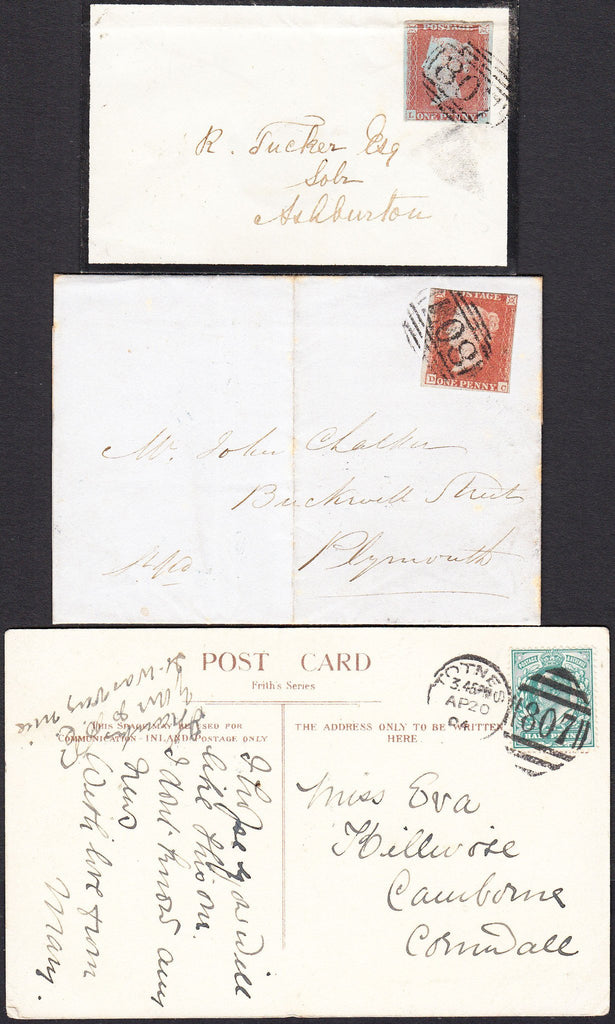 POSTAGE
L
ONE PENNY
R. Tucker Esq
Solr
Ashburton
POSTAGE
D ONE PENNY C
Mr. John Chalker
Buckwell Street
Plymouth
POST CARD
Frith's Series
THIS SPACE MAY BE USED FOR
COMMUNICATION - INLAND POSTAGE ONLY
THE ADDRESS ONLY TO BE WRITTEN
HERE
TOTNES
3.45PM
AP 20
04
807
HALF PENNY
Miss Eva
Killwose
Camborne
Cornwall
I hope you will
like this one.
I dont know any
news
With love from
Mary.